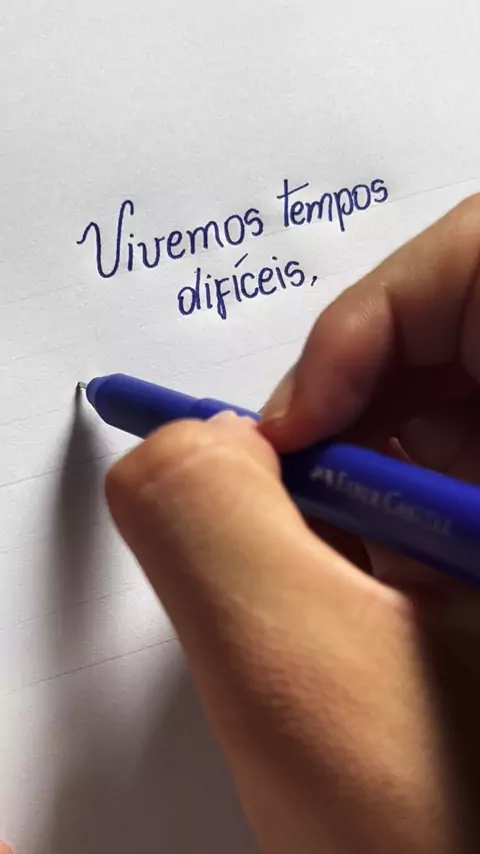 Vivemos tempos
difíceis,
FABER-CASTELL